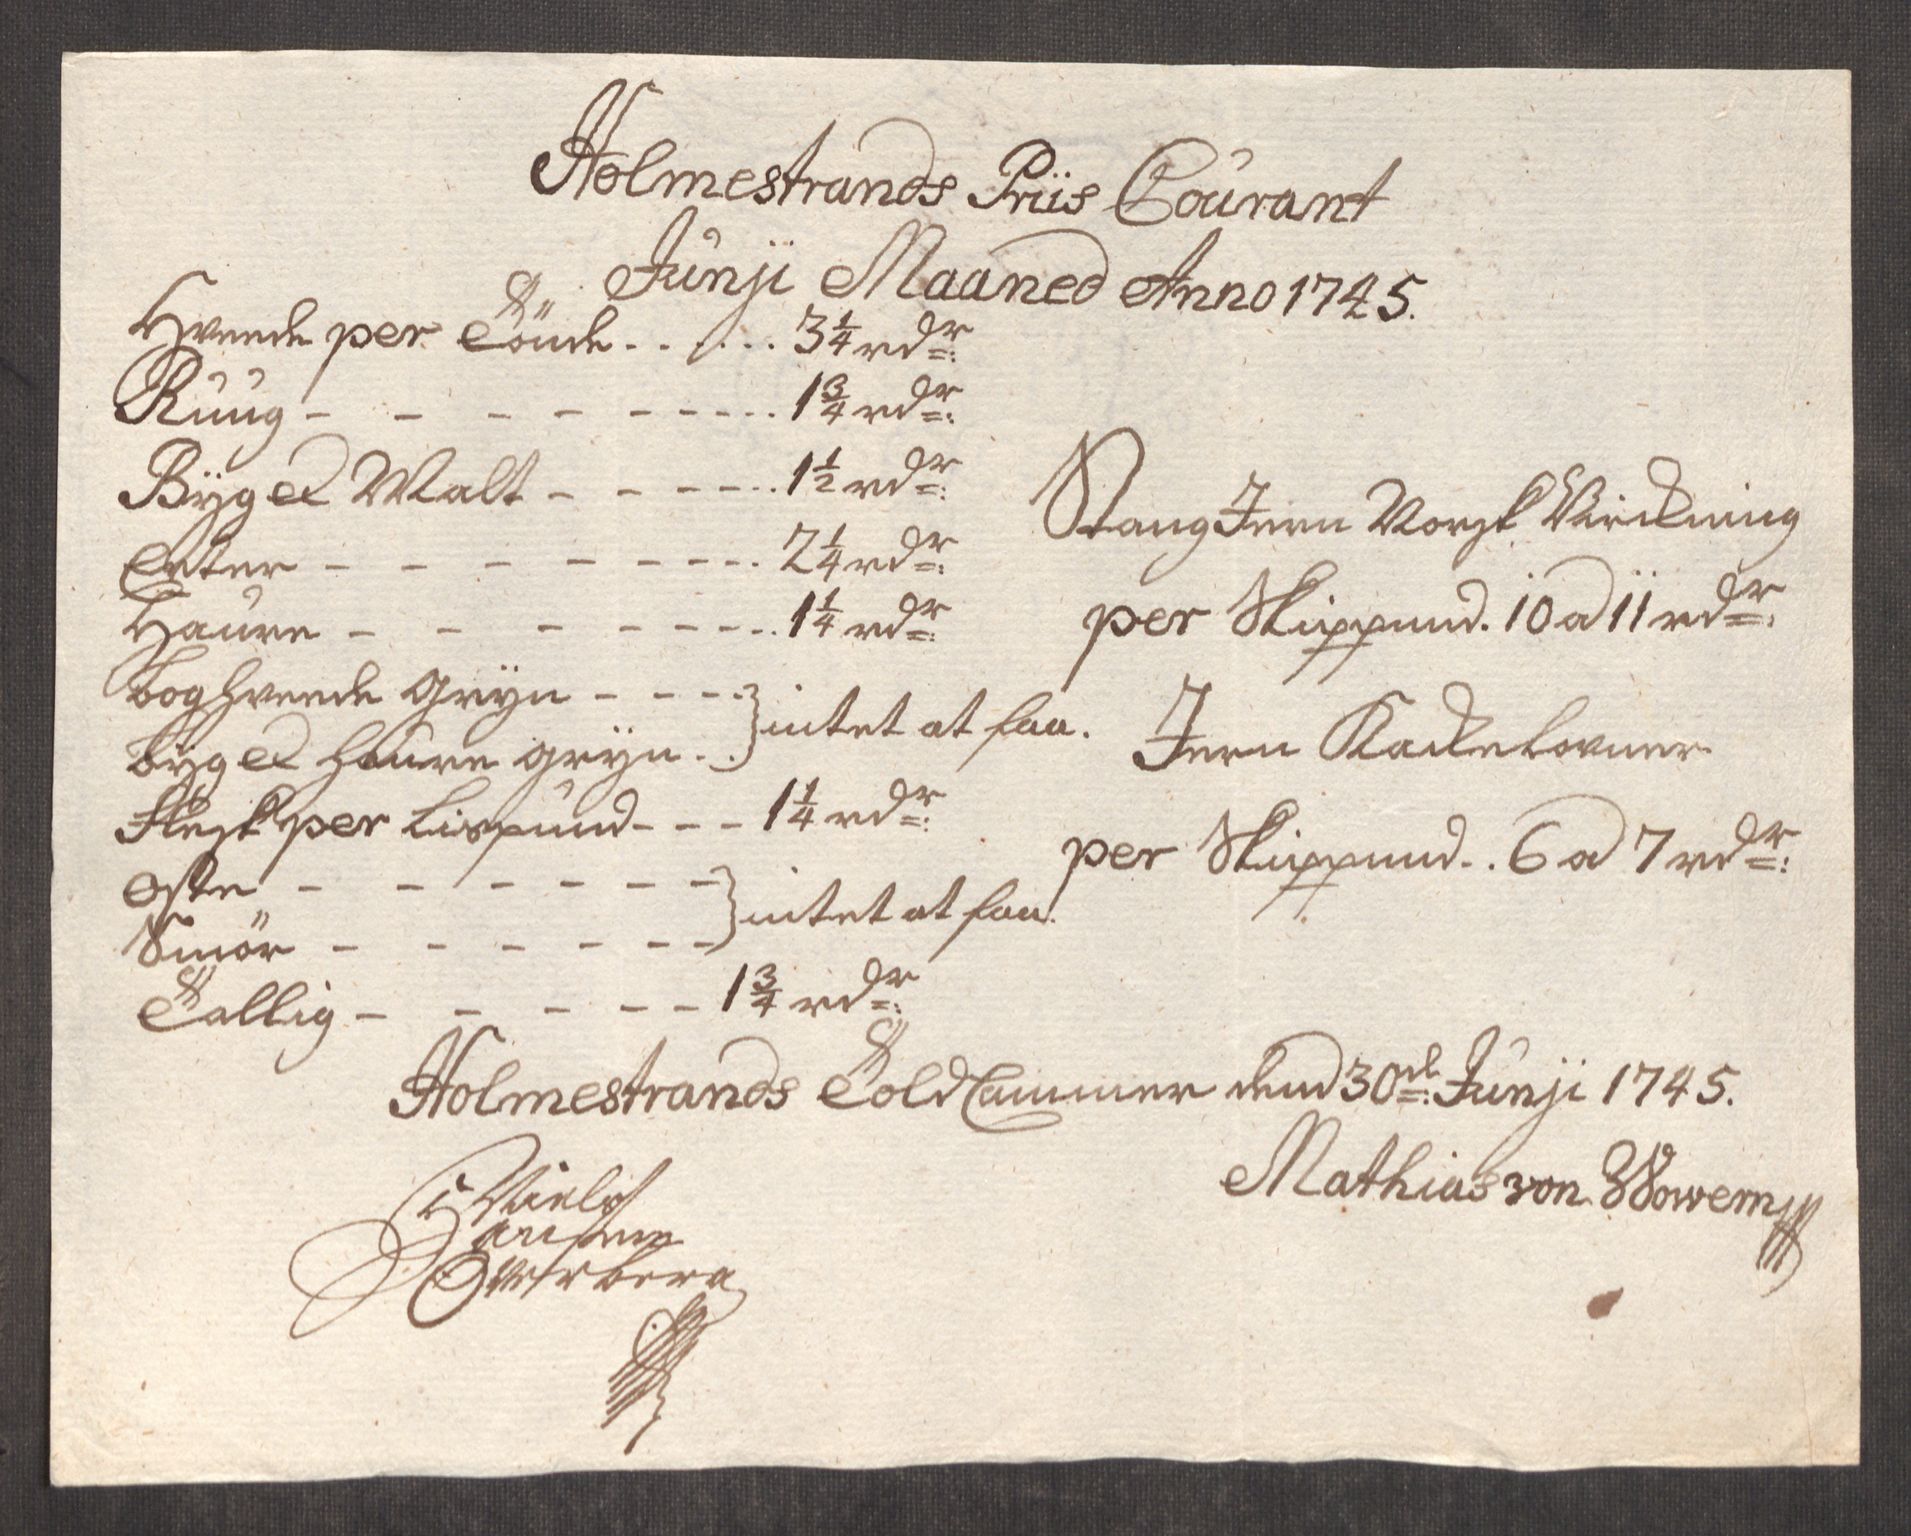 Holmestrands Priis Courant
Junji Maaned Anno 1745.
Hveede per Tönde . . . . . . 3 1/4 rdr:
Ruug - - - - - - - - . . . 1 3/4 rdr:
Byg et Malt - - - - - . . 1 1/2 rdr:
Erter - - - - - - - - . 2 1/4 rdr:
Haure - - - - - - - - . 1 1/4 rdr:
boghveede gryn - - - -
byg et haure gryn . . } intet at faa.
Flesk per Lispund - - - 1 1/4 rdr:
Oste - - - - - - -
Smör - - - - - - - } intet at faa.
Tallig - - - - - - 1 3/4 rdr:
Stang Jern Norsk Virckning
per Skippund. 10 a 11 rdr:
Jern Kackelovner
per Skippund . . 6 a 7 rdr:
Holmestrands Told Cammer dend 30de: Junji 1745.
Mathias von Wowern
Niels
Hansen
Overberg